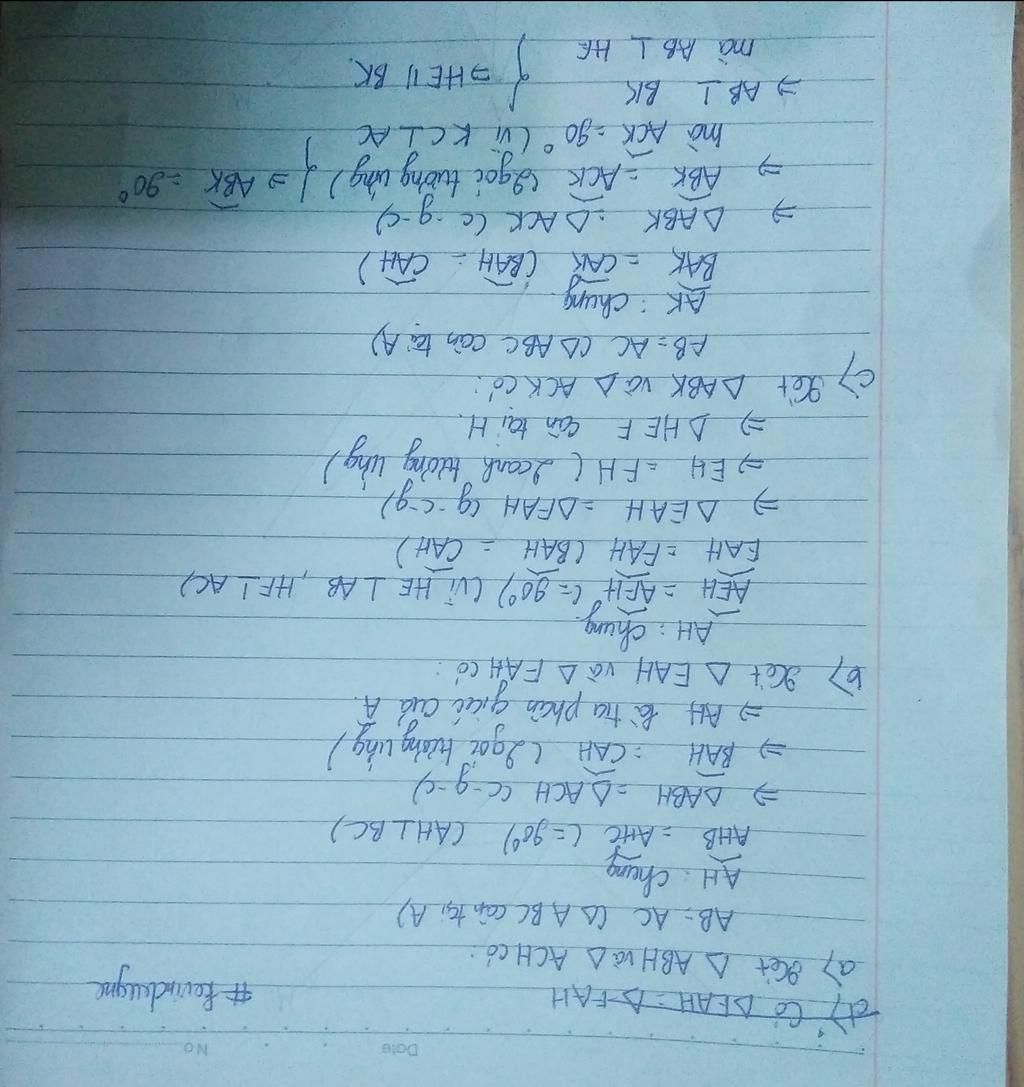 Date No
d) Có ΔEAH = ΔFAH
#kevindeuyne
a) Xét Δ ABH và Δ ACH có:
AB = AC (Δ ABC cân tại A)
AH : chung
AHB = AHC (= 90°) (AH ⊥ BC)
⇒ ΔABH = ΔACH (c-g-c)
⇒ BAH = CAH (2 góc tương ứng)
⇒ AH là tia phân giác của A.
b) Xét Δ EAH và Δ FAH có:
AH : chung
AEH = AEH (= 90°) (vì HE ⊥ AB, HF ⊥ AC)
EAH = FAH (BAH = CAH)
⇒ ΔEAH = ΔFAH (g-c-g)
⇒ EH = FH (2 cạnh tương ứng)
⇒ ΔHEF cân tại H.
c) Xét ΔABK và Δ ACK có:
AB = AC (Δ ABC cân tại A)
AK : chung
BAK = CAK (BAH = CAH)
⇒ ΔABK = Δ ACK (c-g-c)
⇒ ABK = ACK (2 góc tương ứng) } ⇒ ABK = 90°
mà ACK = 90° (vì KC ⊥ AC
⇒ AB ⊥ BK } ⇒ HE // BK.
mà AB ⊥ HE